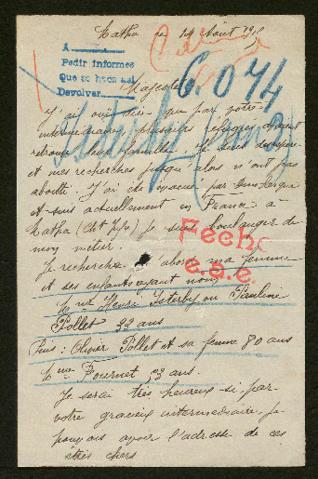 le 14 Août 191
A
Pedir informes
Que se haga así
Devolver
6.074
Majesté
J'ai ouï dire que par votre
intermédiaire plusieurs réfugiés avaient
retrouvé leur famille. Je suis
et mes recherches jusqu'alors n'ont pas
abouti. J'ai été évacué par
et suis actuellement en France à
je suis boulanger de
mon métier.
Fecho
e.s.e.
Je recherche d'abord ma femme
et ses enfants ayant nom
Mme Henri Isterby ou Pauline
Pollet 32 ans
Puis : Olivier Pollet et sa femme 80 ans
Mme Fournet 53 ans.
Je serai très heureux si par
votre gracieux intermédiaire je
pouvais avoir l'adresse de ces
êtres chers